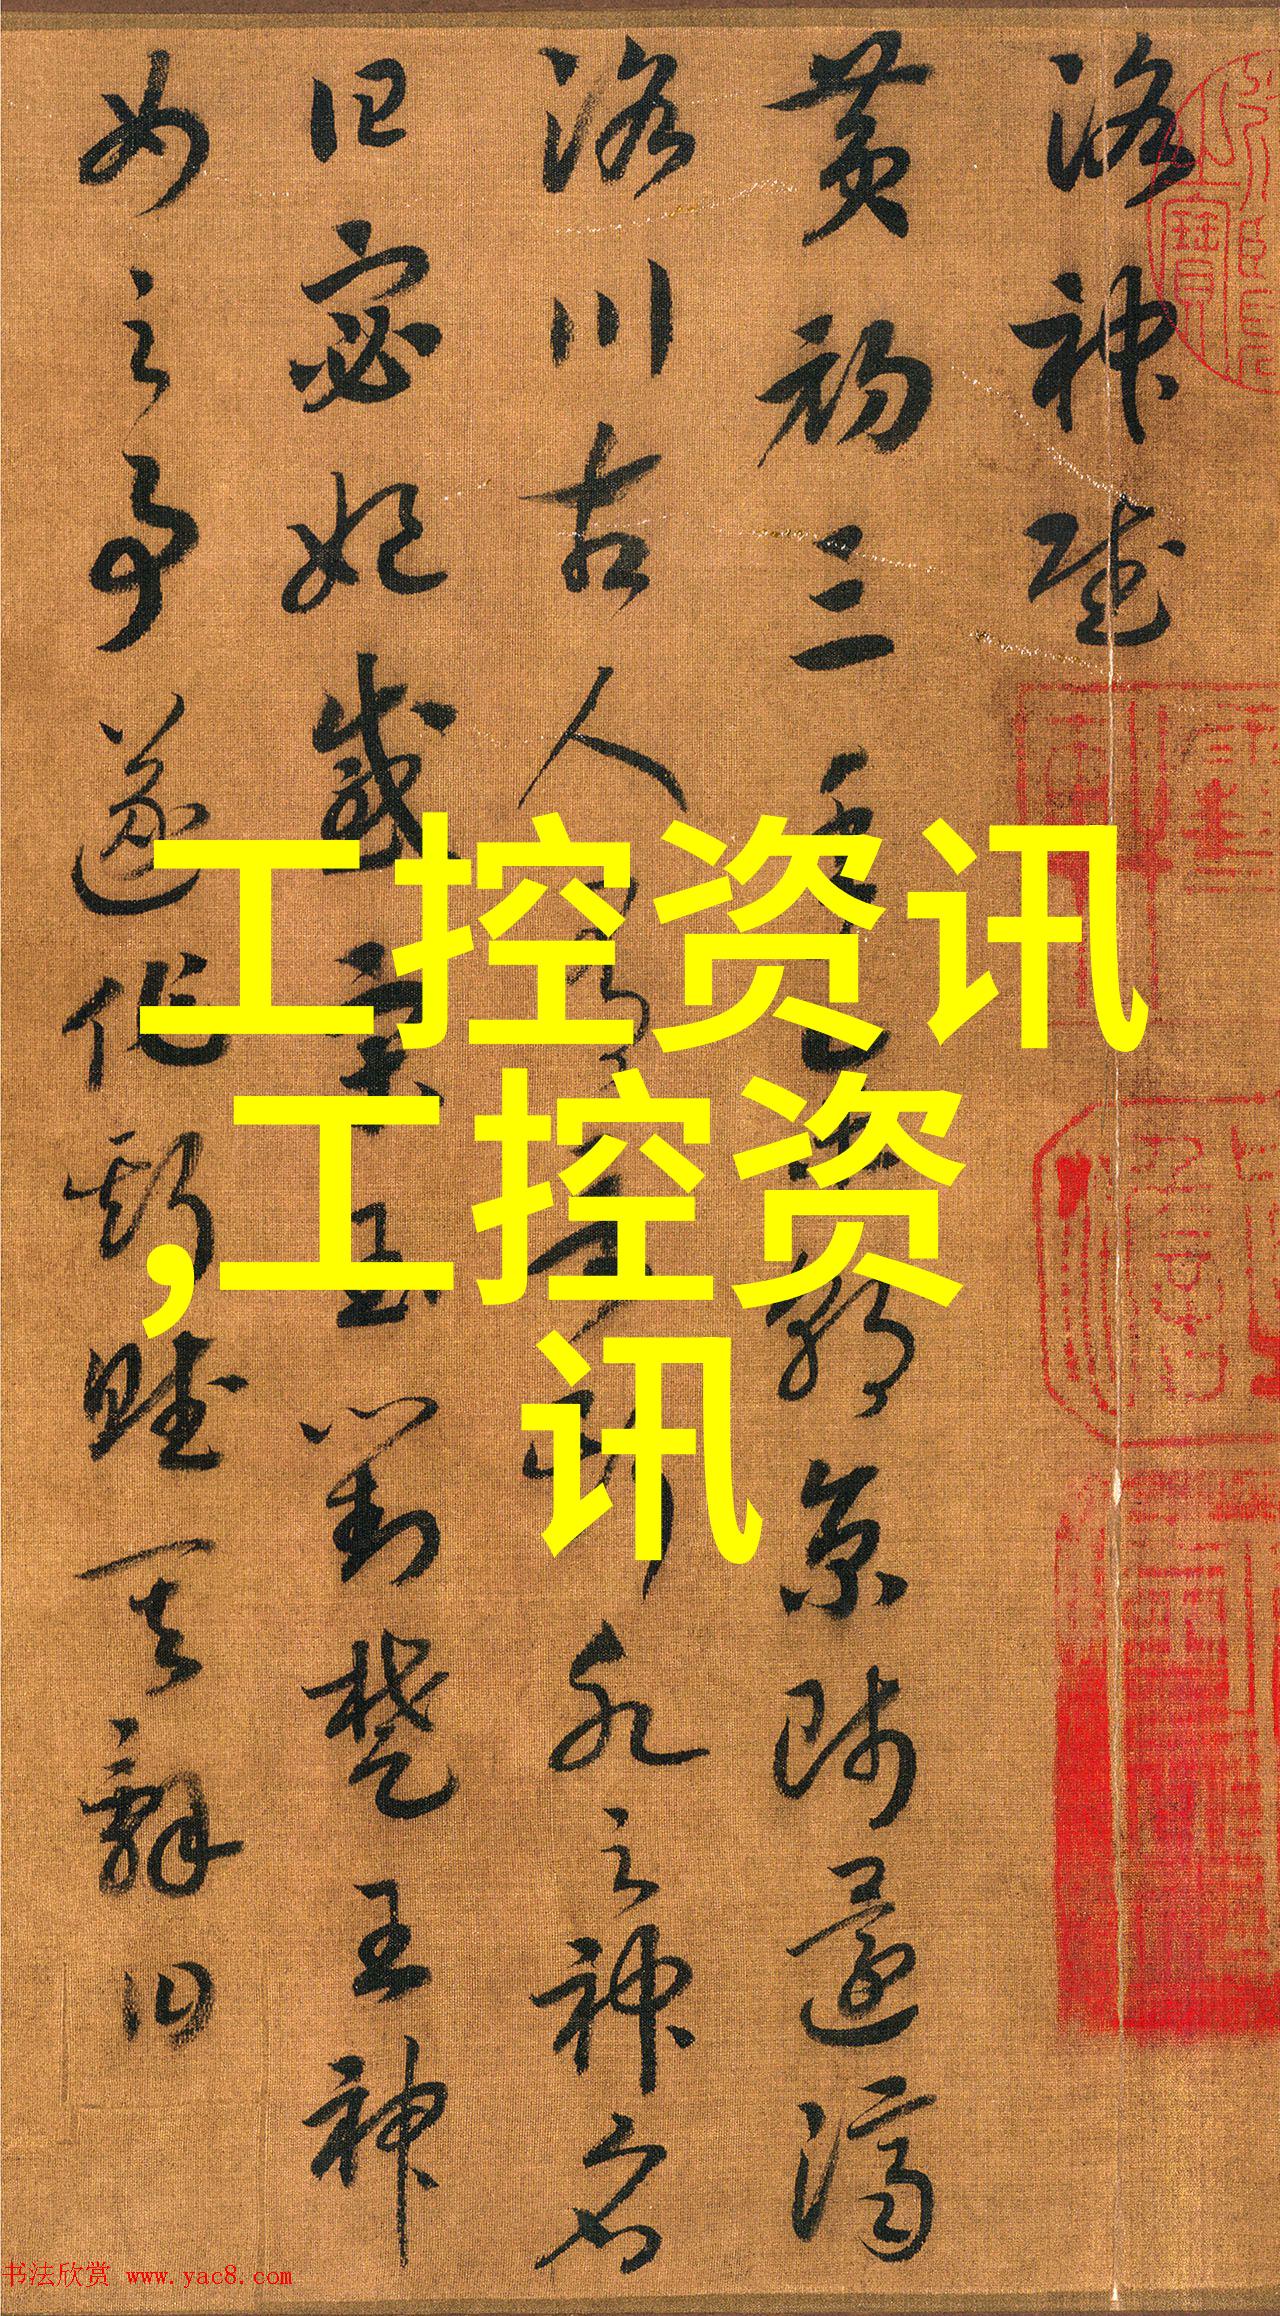 洛神賦
黃初三年余朝京師還濟
洛川古人有言斯水之神名
曰宓妃感宋玉對楚王神
女之事遂作斯賦其辭曰
工控资讯
,工控资
讯
书法欣赏 www.yac8.com